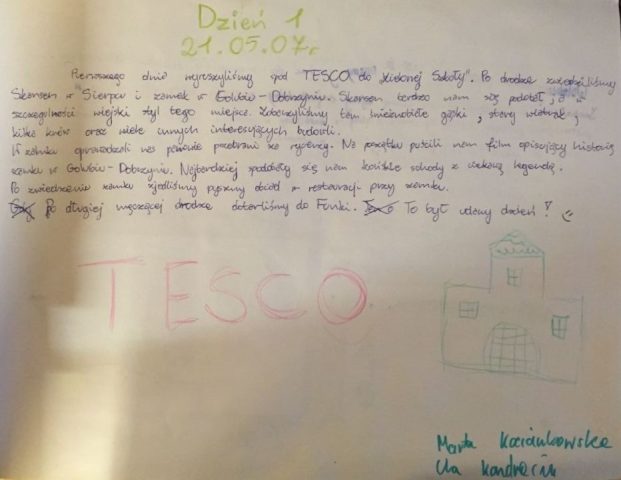 Dzień 1
21.05.07r.
Pierwszego dnia wyruszyliśmy spod TESCO do „zielonej Szkoły”. Po drodze zwiedziliśmy
Skansen w Sierpcu i zamek w Golubiu-Dobrzyniu. Skansen bardzo nam się podobał, a w
szczególności wiejski styl tego miejsca. Zobaczyliśmy tam śnieżnobiałe gąski, stary wiatrak,
kilka krów oraz wiele innych interesujących budowli.
W zamku oprowadzali nas panowie przebrani za rycerzy. Na początku puścili nam film opisujący historię
zamku w Golubiu-Dobrzyniu. Najbardziej spodobały się nam końskie schody z ciekawą legendą.
Po zwiedzeniu zamku zjedliśmy pyszny obiad w restauracji przy zamku.
Po długiej męczącej drodze dotarliśmy do Funki. To był udany dzień!
TESCO
Marta
Ula